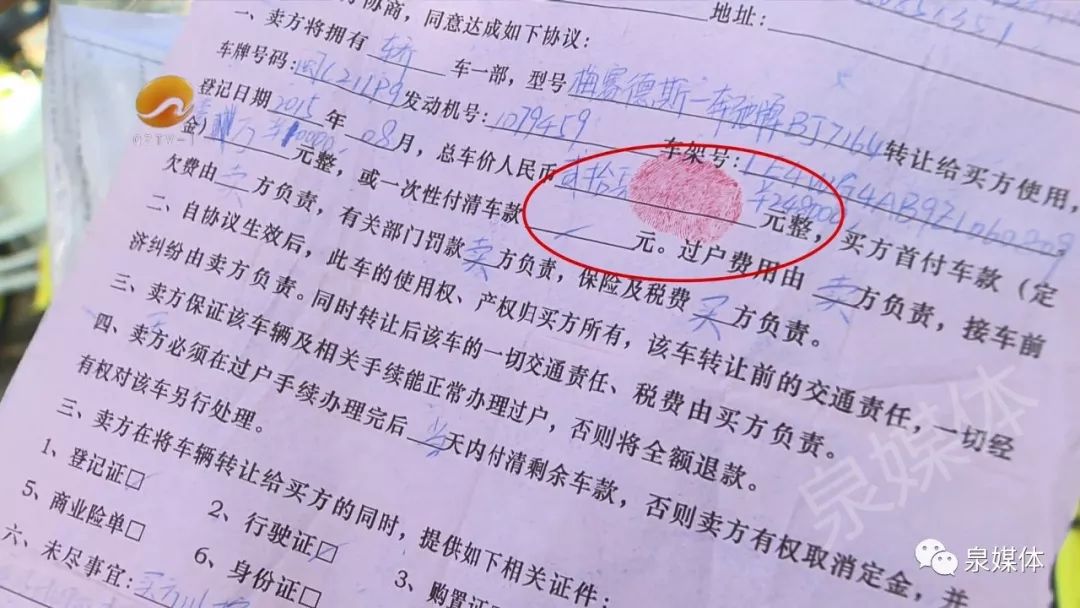 地址:
协商，同意达成如下协议：
一、卖方将拥有 轿 车一部，型号 梅赛德斯一奔驰牌BJ7164 转让给买方使用，
车牌号码:闽C211P9 发动机号: 1079459 车架号:
登记日期2015 年 08 月，总车价人民币 ¥248000 元整，买方首付车款（定
金） 元整，或一次性付清车款 元。过户费用由 卖 方负责，接车前
欠费由 卖 方负责，有关部门罚款 卖 方负责，保险及税费 买 方负责。
二、自协议生效后，此车的使用权、产权归买方所有，该车转让前的交通责任，一切经
济纠纷由卖方负责。同时转让后该车的一切交通责任、税费由买方负责。
三、卖方保证该车辆及相关手续能正常办理过户，否则将全额退款。
四、卖方必须在过户手续办理完后 当 天内付清剩余车款，否则卖方有权取消定金，并
有权对该车另行处理。
三、卖方在将车辆转让给买方的同时，提供如下相关证件：
1、登记证□ 2、行驶证☑ 3、购置证
5、商业险单□ 6、身份证□
六、未尽事宜:
QZTV-1
泉媒体
泉媒体